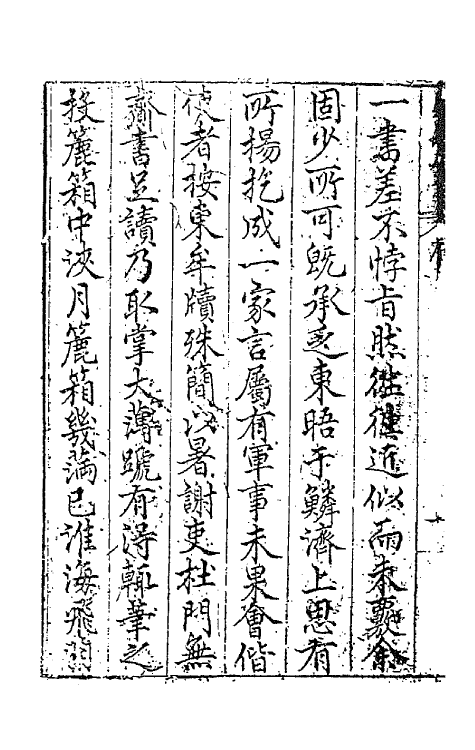 一書差不悖旨然往往近似而未覈僉
固少所可既承乏東晤于鱗濟上思有
所揚扢成一家言屬有軍事未果會偕
使者按東牟牘殊簡以暑謝吏杜門無
齋書足讀乃取掌大薄蹏有得輒筆之
投簏箱中浹月簏箱幾滿已淮海飛羽